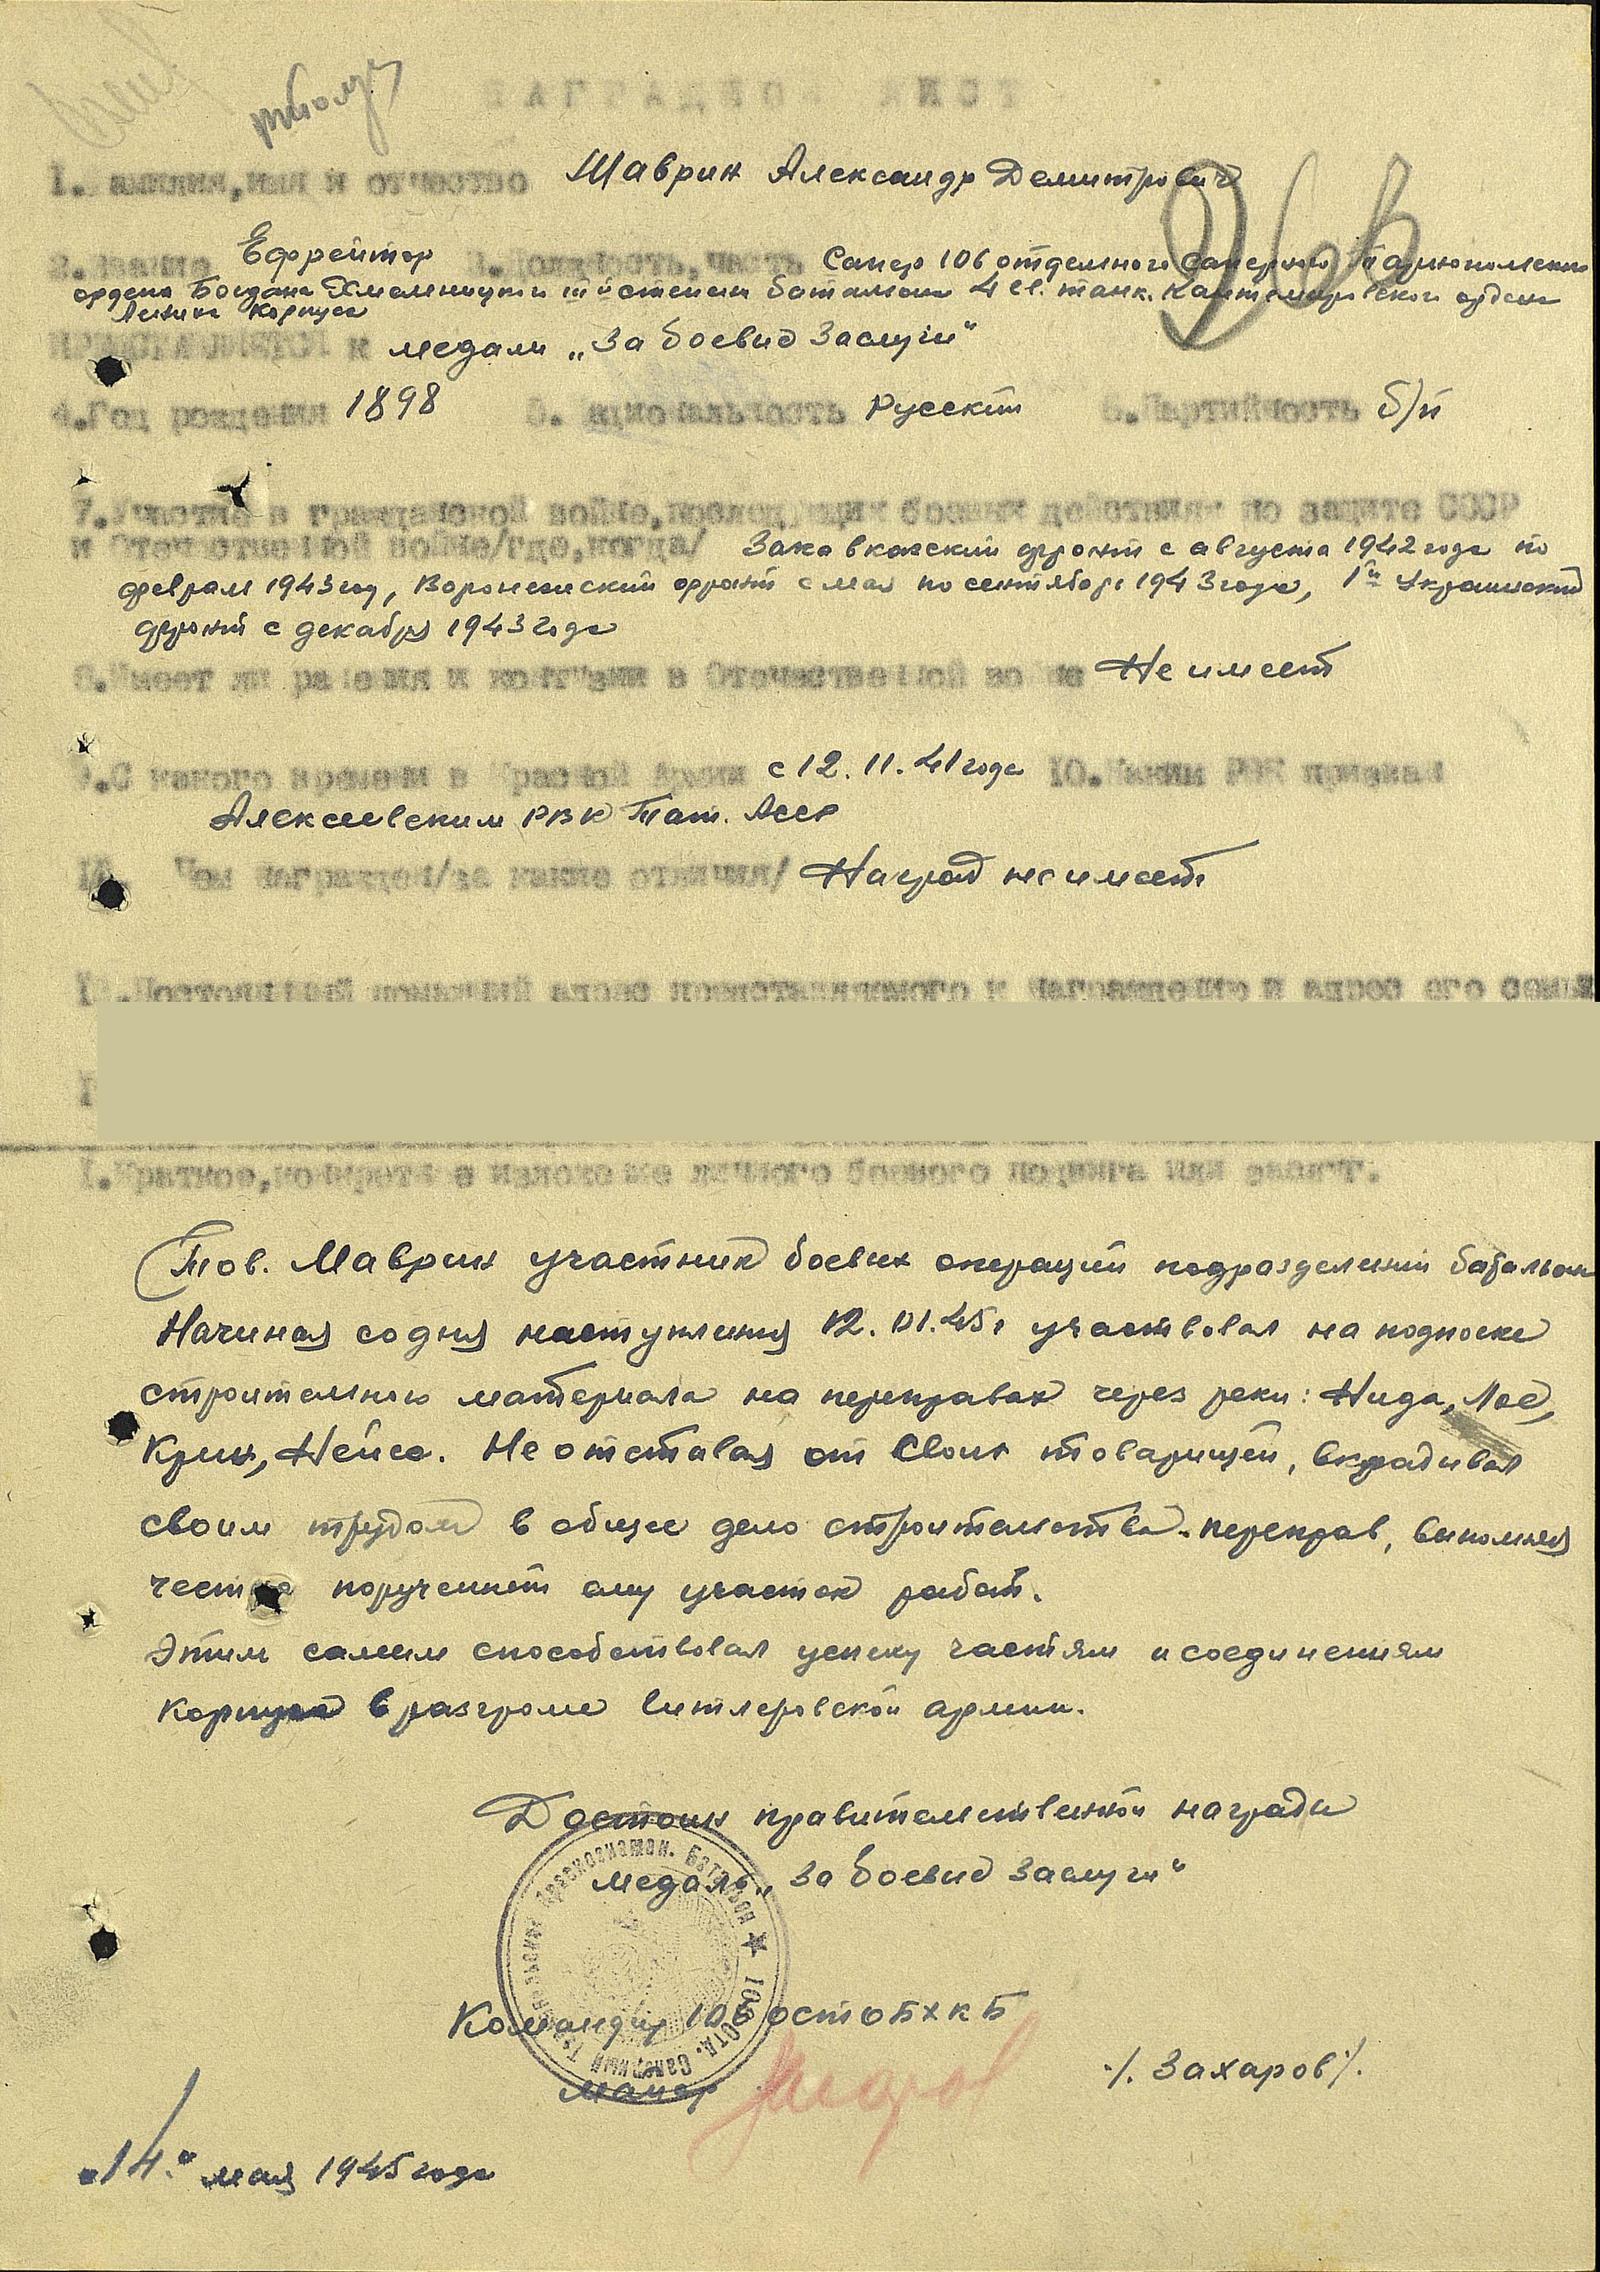 НАГРАДНОЙ ЛИСТ
1. Фамилия, имя и отчество Шаврин Александр Демитрович
2. Звание Ефрейтор 3. Должность, часть Сапер 106 отдельного саперного Тарнопольского
ордена Богдана Хмельницкого III й степени батальона 4 гв. танк. Кантемировского ордена
Ленина Корпуса
ПРЕДСТАВЛЯЕТСЯ к медали „За боевые Заслуги“
4. Год рождения 1898 5. Национальность Русский 6. Партийность б/п
7. Участие в гражданской войне, последующих боевых действиях по защите СССР
и Отечественной войне /где, когда/ Закавказский фронт с августа 1942 года по
февраль 1943 год, Воронежский фронт с мая по сентябрь 1943 года, 1й Украинский
фронт с декабря 1943 года
8. Имеет ли ранения и контузии в Отечественной войне Не имеет
9. С какого времени в Красной Армии с 12.11.41 года 10. Каким РВК призван
Алексеевским РВК Тат. Асср
Чем награжден /за какие отличия/ Наград не имеет
Постоянный домашний адрес представляемого к награждению и адрес его семьи
1. Краткое, конкретное изложение личного боевого подвига или заслуг.
Тов. Шаврин участник боевых операций подразделений батальона
Начиная со дня наступления 12.01.45г участвовал на подноске
строительного материала на переправах через реки: Нида,
Нейсе. Не отставая от своих товарищей, вкладывал
своим трудом в общее дело строительства переправ, выполняя
честно порученный ему участок работ.
Этим самым способствовал успеху частям и соединениям
корпуса в разгроме Гитлеровской армии.
Достоин правительственной награды
медаль „За боевые Заслуги“
Командир 106 осТОБХКБ
майор /. Захаров/.
„14.“ мая 1945 года